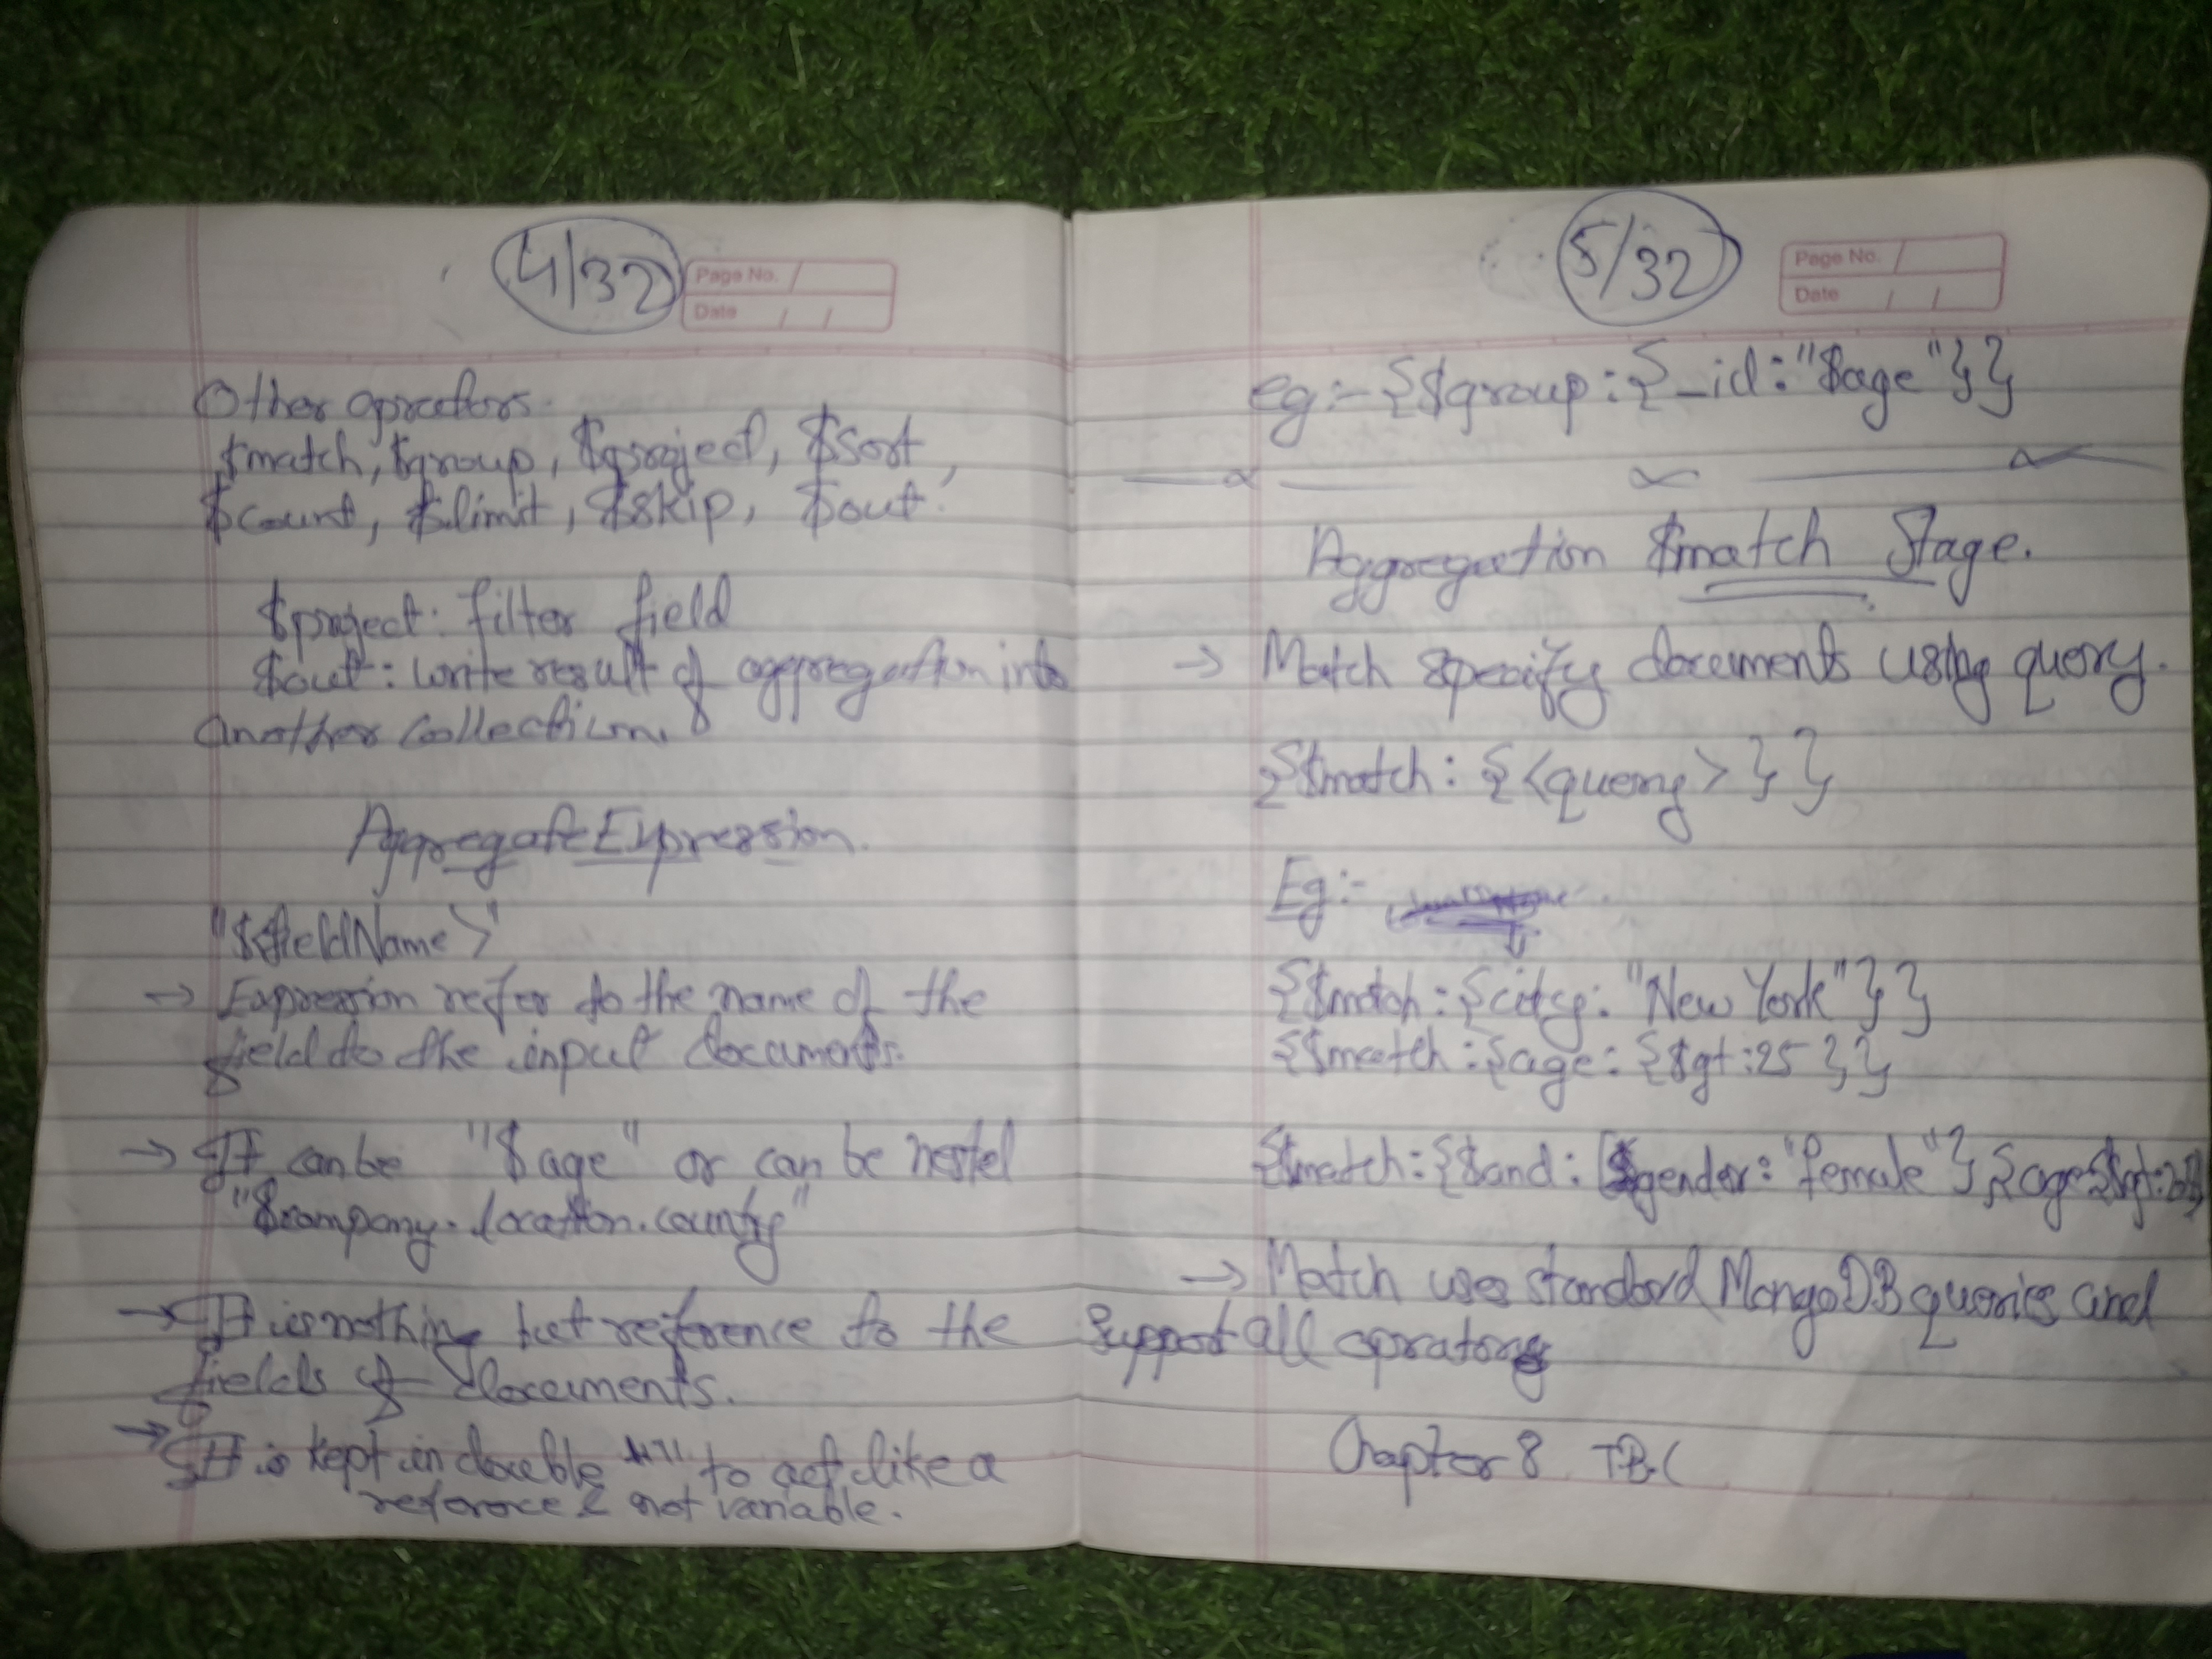 4/32
Page No.
Date / /
Other operators:
$match, $group, $project, $sort,
$count, $limit, $skip, $out.
$project: filter field
$out: write result of aggregation into
another collection.
Aggregate Expression.
"$<fieldName>"
→ Expression refer to the name of the
field to the input documents.
→ It can be "$age" or can be nested
"$company.location.country"
→ It is nothing but reference to the
fields of documents.
→ It is kept in double to act like a
reference & not variable.
5/32
Page No.
Date / /
eg:- {$group:{_id:"$age"}}
Aggregation $match Stage.
→ Match specify documents using query.
{$match: {<query>}}
Eg:-
{$match:{city:"New York"}}
{$match:{age:{$gt:25}}
{$match:{$and:[{gender:"female"},{age:{$gt:25}}
→ Match uses standard MongoDB queries and
support all operators
Chapter 8